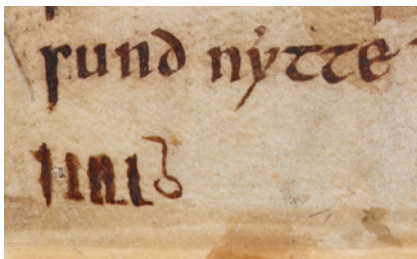 sund nẏtte